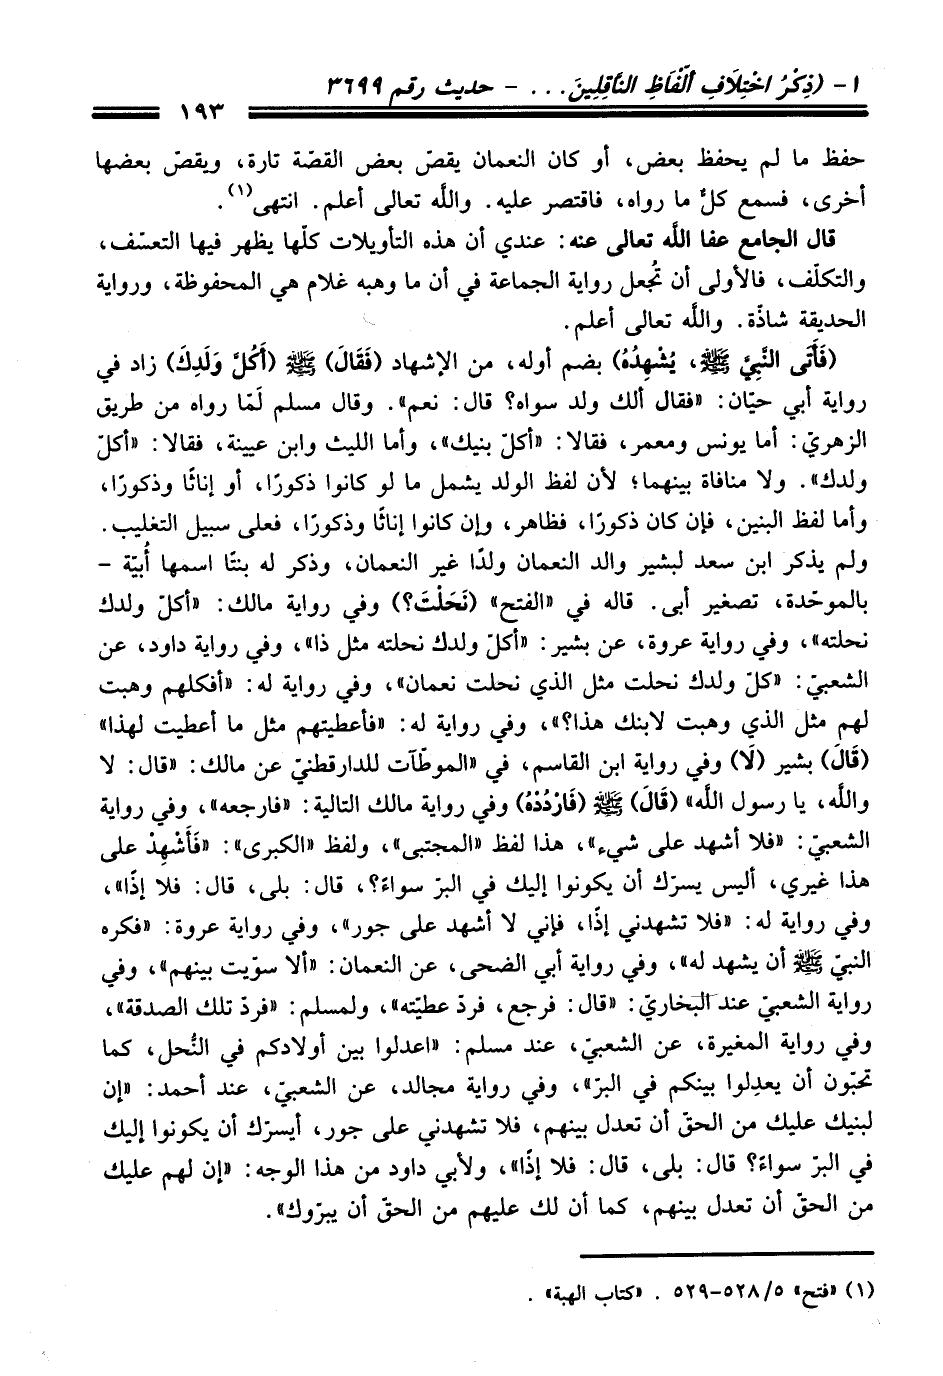 ١- (ذِكْرُ اخْتِلَافِ أَلْفَاظِ النَّاقِلِينَ... - حديث رقم ٣٦٩٩
١٩٣
حفظ ما لم يحفظ بعض، أو كان النعمان يقصّ بعض القصّة تارة، ويقصّ بعضها
أخرى، فسمع كلٌّ ما رواه، فاقتصر عليه. واللَّه تعالى أعلم. انتهى(١).
قال الجامع عفا اللَّه تعالى عنه: عندي أن هذه التأويلات كلّها يظهر فيها التعسّف،
والتكلّف، فالأولى أن تُجعل رواية الجماعة في أن ما وهبه غلام هي المحفوظة، ورواية
الحديقة شاذّة. واللَّه تعالى أعلم.
(فَأَتَى النَّبِيَّ ﷺ، يُشْهِدُهُ) بضم أوله، من الإشهاد (فَقَالَ) ﷺ (أَكُلَّ وَلَدِكَ) زاد في
رواية أبي حيّان: «فقال ألك ولد سواه؟ قال: نعم». وقال مسلم لَمّا رواه من طريق
الزهريّ: أما يونس ومعمر، فقالا: «أكلّ بنيك»، وأما الليث وابن عيينة، فقالا: «أكلّ
ولدك». ولا منافاة بينهما؛ لأن لفظ الولد يشمل ما لو كانوا ذكورًا، أو إناثًا وذكورًا،
وأما لفظ البنين، فإن كان ذكورًا، فظاهر، وإن كانوا إناثًا وذكورًا، فعلى سبيل التغليب.
ولم يذكر ابن سعد لبشير والد النعمان ولدًا غير النعمان، وذكر له بنتًا اسمها أُبيّة -
بالموحّدة، تصغير أبى. قاله في «الفتح» (نَحَلْتَ؟) وفي رواية مالك: «أكلّ ولدك
نحلته»، وفي رواية عروة، عن بشير: «أكلّ ولدك نحلته مثل ذا»، وفي رواية داود، عن
الشعبيّ: «كلّ ولدك نحلت مثل الذي نحلت نعمان»، وفي رواية له: «أفكلهم وهبت
لهم مثل الذي وهبت لابنك هذا؟»، وفي رواية له: «فأعطيتهم مثل ما أعطيت لهذا»
(قَالَ) بشير (لَا) وفي رواية ابن القاسم، في «الموطّآت للدارقطنيّ عن مالك: «قال: لا
واللَّه، يا رسول اللَّه» (قَالَ) ﷺ (فَارْدُدْهُ) وفي رواية مالك التالية: «فارجعه»، وفي رواية
الشعبيّ: «فلا أشهد على شيء»، هذا لفظ «المجتبى»، ولفظ «الكبرى»: «فَأَشْهِدْ على
هذا غيري، أليس يسرّك أن يكونوا إليك في البرّ سواءً؟، قال: بلى، قال: فلا إذًا»،
وفي رواية له: «فلا تشهدني إذًا، فإني لا أشهد على جور»، وفي رواية عروة: «فكره
النبيّ ﷺ أن يشهد له»، وفي رواية أبي الضحى، عن النعمان: «ألا سوّيت بينهم»، وفي
رواية الشعبيّ عند البخاريّ: «قال: فرجع، فردّ عطيّته»، ولمسلم: «فردّ تلك الصدقة»،
وفي رواية المغيرة، عن الشعبيّ، عند مسلم: «اعدلوا بين أولادكم في النُّحل، كما
تحبّون أن يعدِلوا بينكم في البرّ»، وفي رواية مجالد، عن الشعبيّ، عند أحمد: «إن
لبنيك عليك من الحقّ أن تعدل بينهم، فلا تشهدني على جور، أيسرّك أن يكونوا إليك
في البرّ سواءً؟ قال: بلى، قال: فلا إذًا»، ولأبي داود من هذا الوجه: «إن لهم عليك
من الحقّ أن تعدل بينهم، كما أن لك عليهم من الحقّ أن يبرّوك».
(١) «فتح» ٥/ ٥٢٨-٥٢٩ . «كتاب الهبة» .